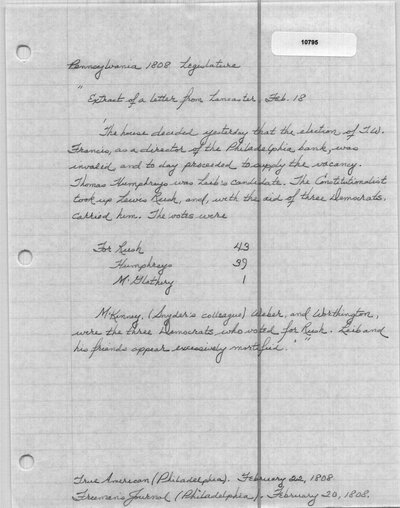 10795
Pennsylvania 1808 Legislature
" Extract of a letter from Lancaster, Feb. 18
'The house decided yesterday that the election of T.W.
Francis, as a director of the Philadelphia bank, was
invalid and to day proceeded to supply the vacancy.
Thomas Humphreys was Leib's candidate. The Constitutionalist
took up Lewis Rush, and, with the aid of three Democrats,
carried him. The votes were
For Rush 43
Humphreys 39
McGlathery 1
McKinney, (Snyder's colleague) Weber, and Worthington,
were the three Democrats who voted for Rush. Leib and
his friends appear excessively mortified.' "
True American (Philadelphia). February 22, 1808
Freeman's Journal (Philadelphia). February 20, 1808.